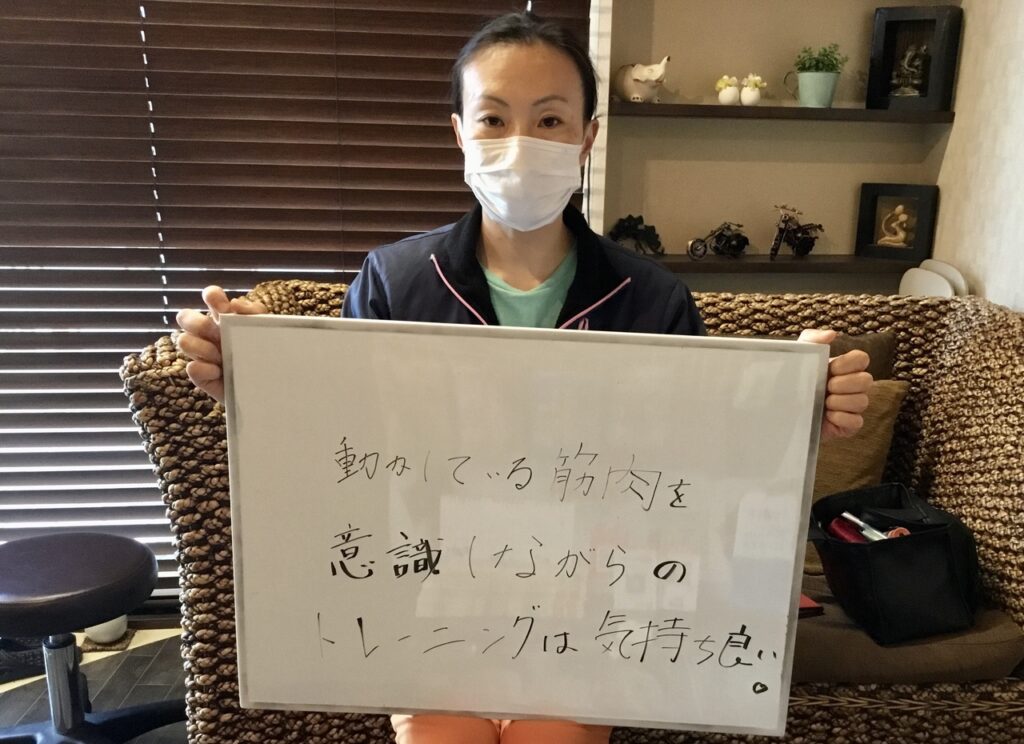 動かしている筋肉を
意識しながらの
トレーニングは気持ち良い。